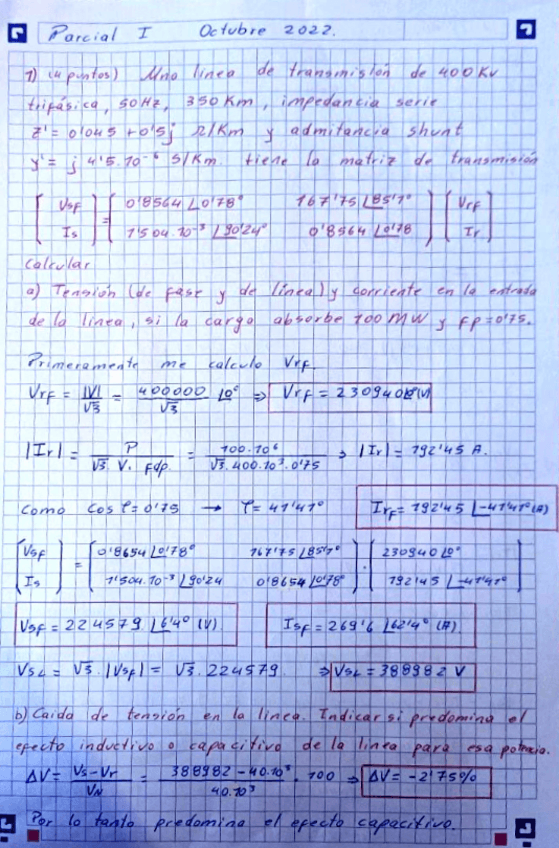 Parcial I Octubre 2022.
1) (4 puntos) Una línea de transmisión de 400 Kv
trifásica, 50 Hz, 350 Km, impedancia serie
z' = 0'045 + 0'5j Ω/Km y admitancia shunt
y' = j 4'5.10⁻⁶ S/Km. tiene la matriz de transmisión
[Vsf Is] = [0'8564 ∠0'78° 167'75 ∠85'1° 1'504.10⁻³ ∠90'24° 0'8564 ∠0'78] [Vrf Ir]
Calcular
a) Tensión (de fase y de línea) y corriente en la entrada
de la línea, si la carga absorbe 100 MW y fp=0'75.
Primeramente me calculo Vrf.
Vrf = |V|/√3 = 400000/√3 ∠0° ⇒ Vrf = 230940∠0°(V)
|Ir| = P/√3. V. fdp. = 100.10⁶/√3.400.10³.0'75 ⇒ |Ir| = 192'45 A.
Como Cos φ = 0'75 → φ = 41'41° Irf = 192'45 ∠-41'41° (A)
[Vsf Is] = [0'8654 ∠0'78° 167'75 ∠85'1° 1'504.10⁻³ ∠90'24 0'8654 ∠0'78°] . [230940 ∠0° 192'45 ∠-41'41°]
Vsf = 224579 ∠6'4° (V) Isf = 269'6 ∠62'4° (A)
VsL = √3. |Vsf| = √3. 224579 ⇒ VsL = 388982 V
b) Caida de tensión en la línea. Indicar si predomina el
efecto inductivo o capacitivo de la línea para esa potencia.
ΔV = Vs-Vr/VN = 388982 - 40.10³/40.10³ . 100 ⇒ ΔV = -2'75%
Por lo tanto predomina el efecto capacitivo.